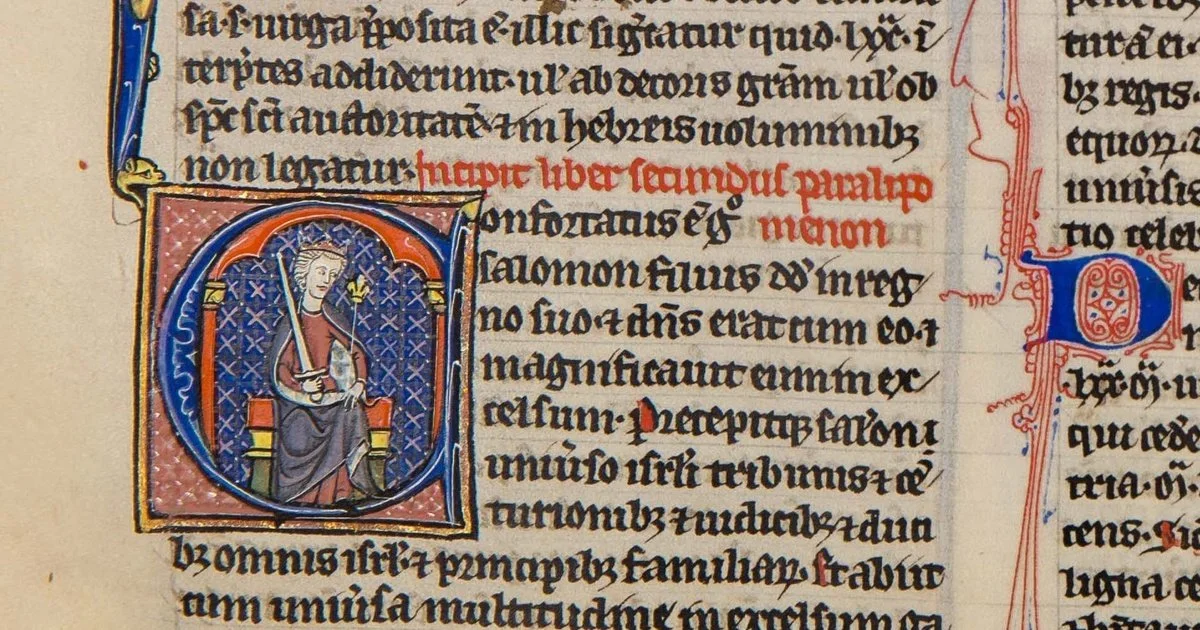 sa·s·uirga p̄posita ē· illic sig͛tatur quid·lxx·ī
terp̄tes addiderunt· ul' ab decoris grām ul' ob
sp̄c sc̄i auctoritatē· ⁊ in hebreis uoluminibꝫ
non legatur· Incipit liber secundus paralipo
onfortatus ē g° menon
salomon filius dd̄ in reg
no suo·⁊ dn̄s erat cum eo·⁊
magnificauit eum in ex
celsum· Precepitqꝫ salomōi
uniūso isrl̄i tribunis ⁊ cē
turionibꝫ ⁊ iudicibꝫ ⁊ duci
bꝫ omnis isrl̄·⁊ principibꝫ familiaꝝ· Et abiit
cum uniūsa multitudine in excelsum ga
turā ei·
bꝫ regis·
equoꝝ·
uniūsis
tio celeb
D
lxx·
qui cedē
tria·
cens· Sic
ligna ce